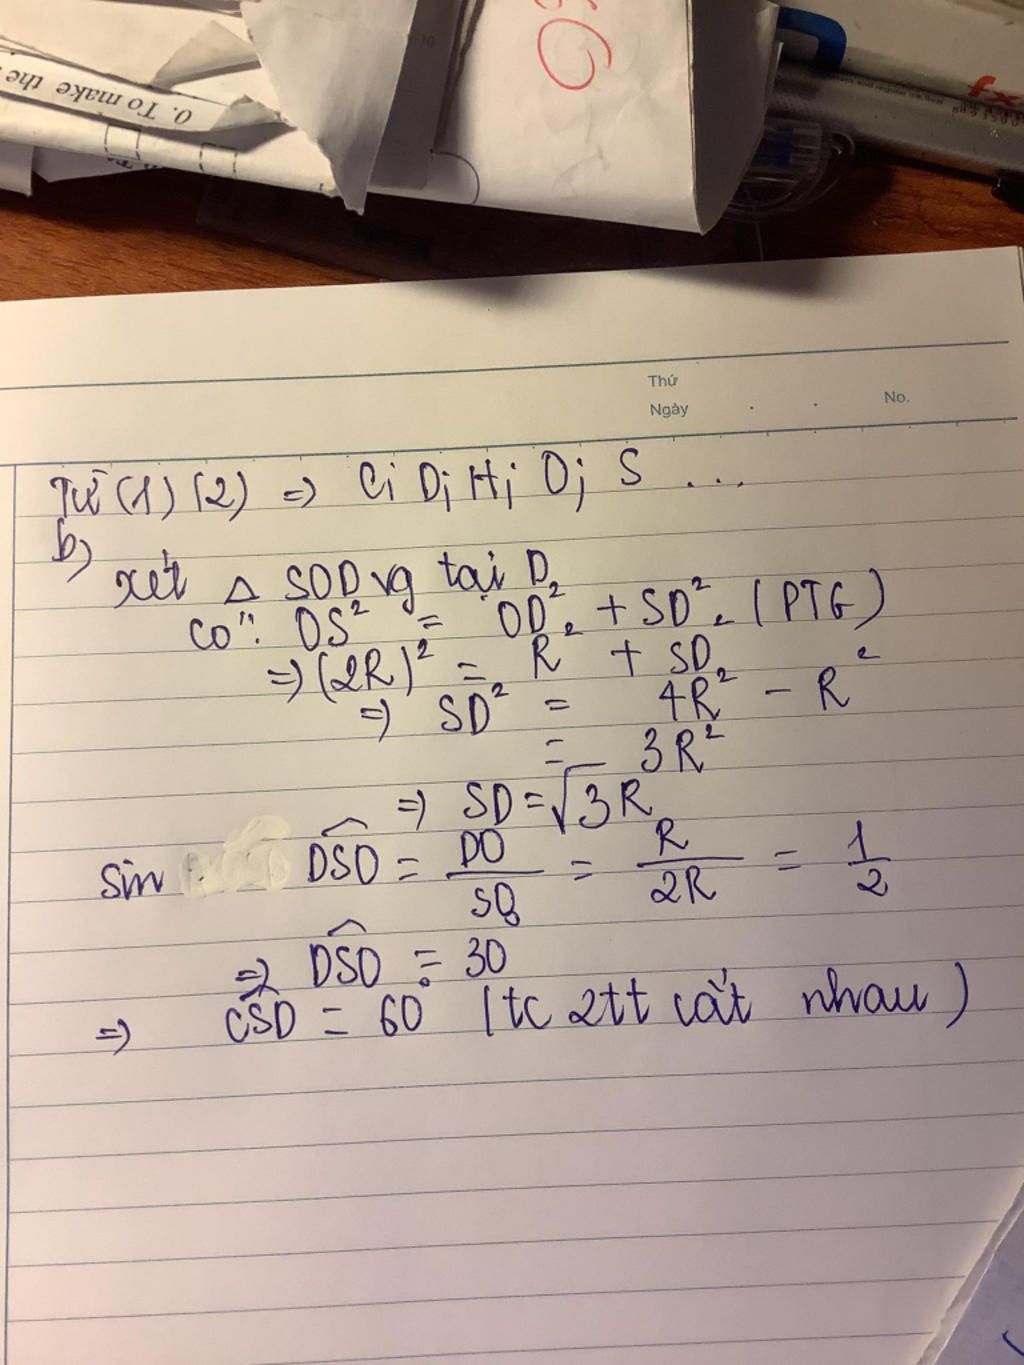 0. To make the
66
fx
Thứ
Ngày . . No.
Từ (1) (2) => C; D; H; O; S ...
b)
xét △ SOD vg tại D
có: OS² = OD² + SD² (PTG)
=> (2R)² = R² + SD²
=> SD² = 4R² - R²
= 3R²
=> SD = √3 R
Sin DSO = DO/SO = R/2R = 1/2
=> DSO = 30°
=> CSD = 60° (tc 2tt cắt nhau)